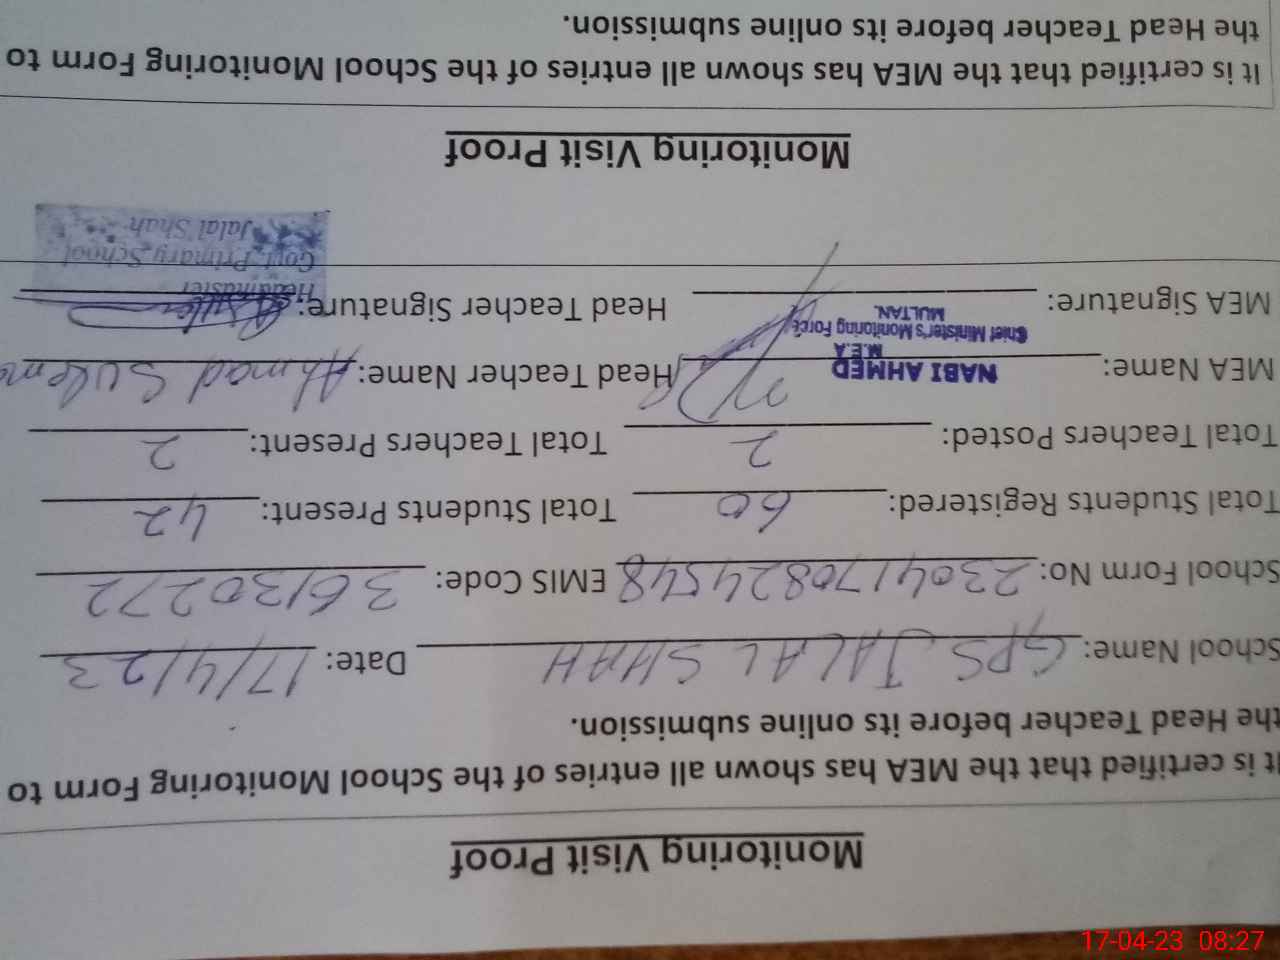 Monitoring Visit Proof
It is certified that the MEA has shown all entries of the School Monitoring Form to
the Head Teacher before its online submission.
School Name: GPS JALAL SHAH Date: 17/4/23
School Form No: 2304170824548 EMIS Code: 36130272
Total Students Registered: 60 Total Students Present: 42
Total Teachers Posted: 2 Total Teachers Present: 2
MEA Name: NABI AHMED Head Teacher Name: Ahmad
M.E.A
Chief Minister's Monitoring Force
MULTAN.
MEA Signature: Head Teacher Signature:
Headmaster
Govt. Primary School
Jalal Shah
Monitoring Visit Proof
It is certified that the MEA has shown all entries of the School Monitoring Form to
the Head Teacher before its online submission.
17-04-23 08:27